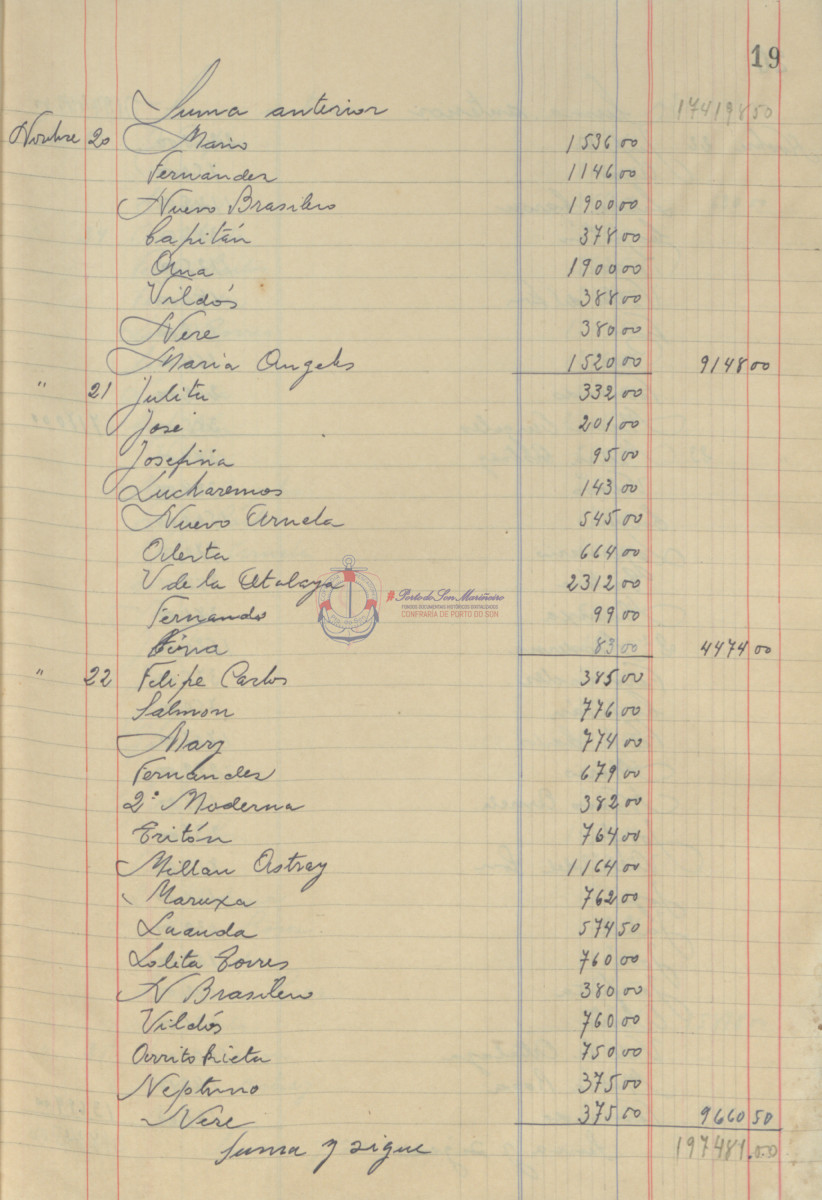 19
Suma anterior 174198 50
Novbre 20 Mario 1536 00
Fernández 1146 00
Nuevo Brasilero 1900 00
Capitán 378 00
Ana 1900 00
Vildós 388 00
Nere 380 00
Maria Angeles 1520 00 9148 00
" 21 Julita 332 00
José 201 00
Josefina 95 00
Lucharemos 143 00
Nuevo Arnela 545 00
664 00
V de la Atalaya 2312 00
Fernando 99 00
83 00 4474 00
" 22 Felipe Carlos 385 00
Salmon 776 00
Mary 774 00
Fernandez 679 00
2ª Moderna 382 00
Tritón 764 00
Millan Astray 1164 00
Maruxa 762 00
Luanda 574 50
Lolita Torres 760 00
N Brasilero 380 00
Vildós 760 00
Arrito Rieta 750 00
Neptuno 375 00
Nere 375 00 9660 50
Suma y sigue 197481.00
Porto do Son Mariñeiro
FONDOS DOCUMENTAIS HISTÓRICOS DIXITALIZADOS
CONFRARÍA DE PORTO DO SON